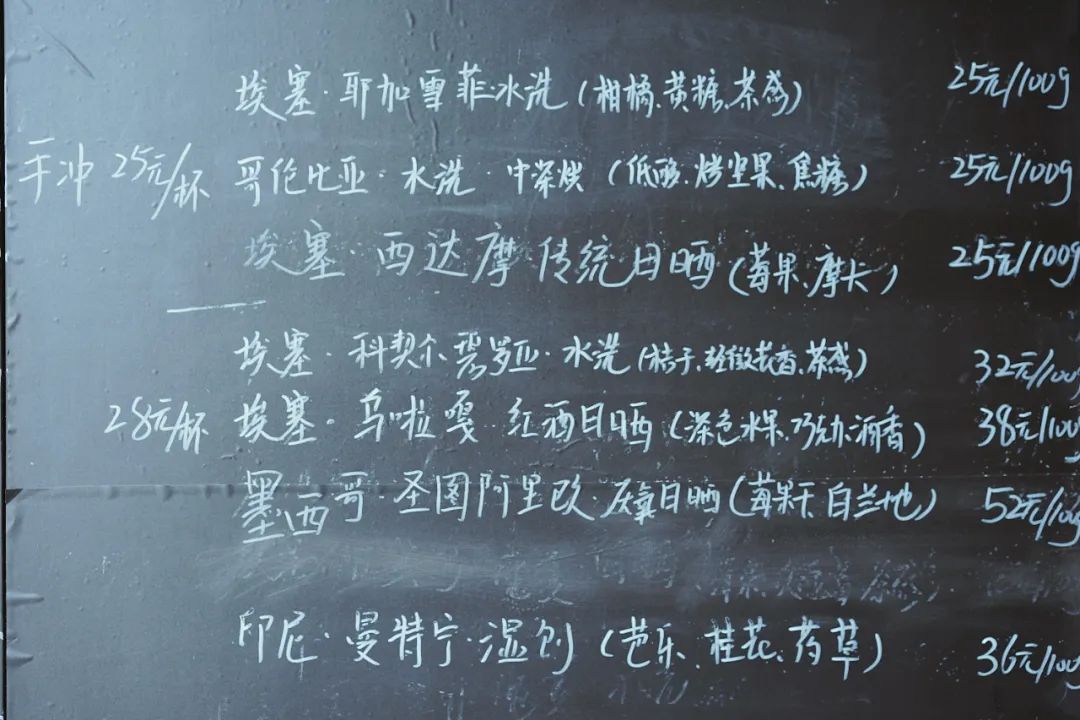 埃塞·耶加雪菲·水洗（柑橘、黄糖、茶感） 25元/100g
手冲 25元/杯 哥伦比亚·水洗·中深烘（低酸、烤坚果、焦糖） 25元/100g
埃塞·西达摩 传统日晒（莓果、摩卡） 25元/100g
埃塞·科契尔 碧罗亚·水洗（桔子、轻微花香、茶感） 32元/100g
28元/杯 埃塞·乌啦嘎·红酒日晒（深色水果、巧劲、酒香） 38元/100g
墨西哥·圣图阿里欧·厌氧日晒（莓果干、白兰地） 52元/100g
印尼·曼特宁·湿刨（芭乐、桂花、药草） 36元/100g